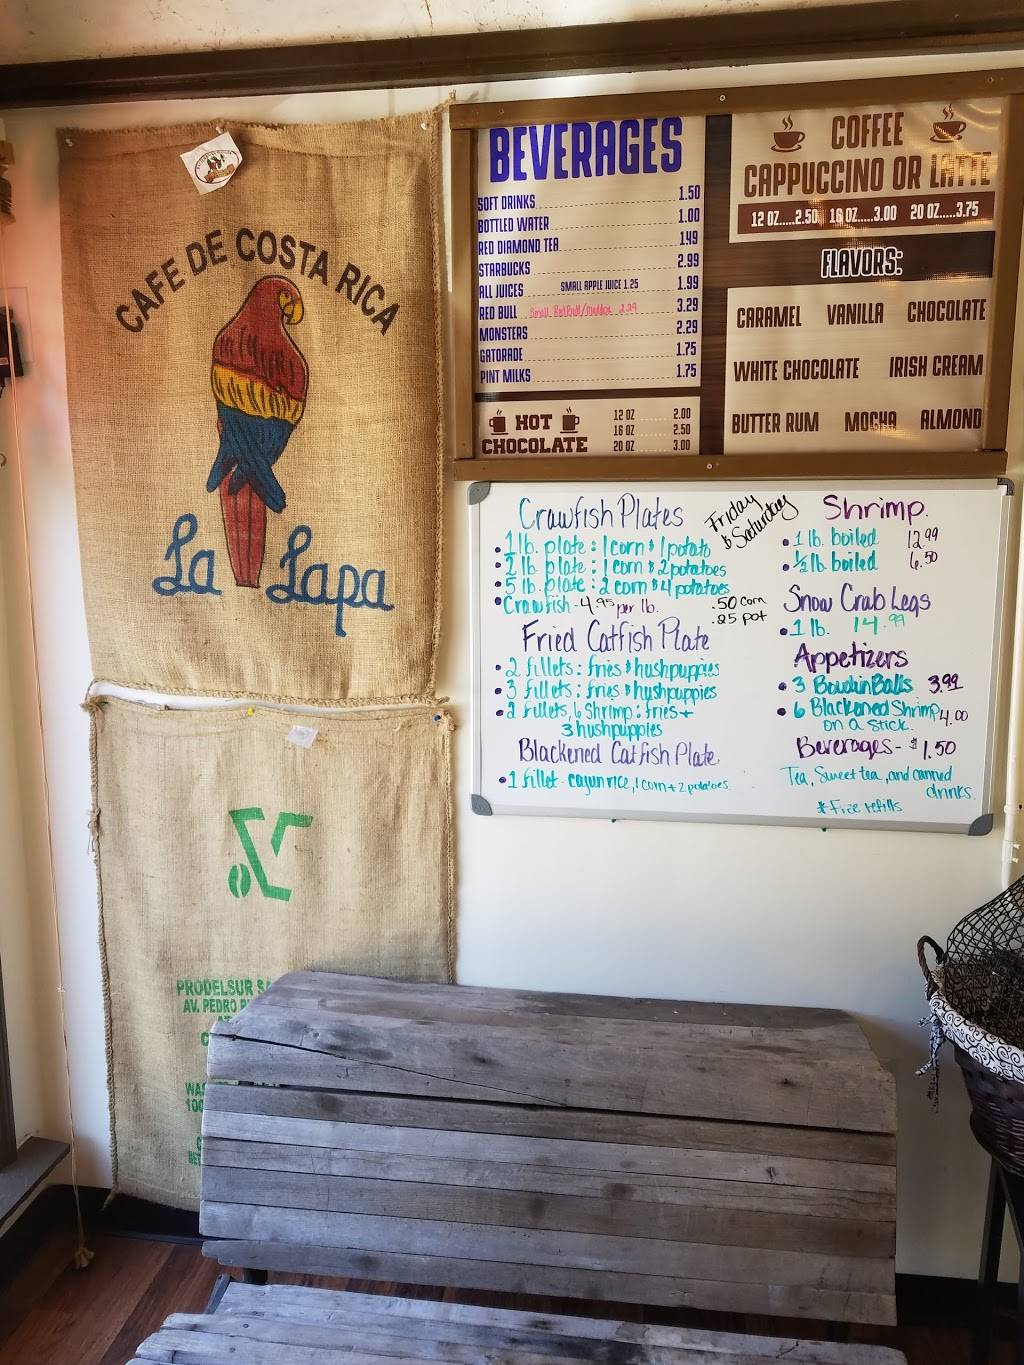 CAFE DE COSTA RICA
La Lapa
PRODELSUR
AV. PEDRO
BEVERAGES
SOFT DRINKS 1.50
BOTTLED WATER 1.00
RED DIAMOND TEA 1.49
STARBUCKS 2.99
ALL JUICES SMALL APPLE JUICE 1.25 1.99
RED BULL Small Red Bull 2.29 3.29
MONSTERS 2.29
GATORADE 1.75
PINT MILKS 1.75
HOT CHOCOLATE
12 OZ 2.00
16 OZ 2.50
20 OZ 3.00
COFFEE
CAPPUCCINO OR LATTE
12 OZ.....2.50 16 OZ.....3.00 20 OZ.....3.75
FLAVORS:
CARAMEL VANILLA CHOCOLATE
WHITE CHOCOLATE IRISH CREAM
BUTTER RUM MOCHA ALMOND
Crawfish Plates
Friday
& Saturday
• 1 lb. plate: 1 corn & 1 potato
• 2 lb. plate: 1 corn & 2 potatoes
• 5 lb. plate: 2 corn & 4 potatoes
• Crawfish - 4.95 per lb.
.50 corn
.25 pot
Fried Catfish Plate
• 2 fillets: fries & hushpuppies
• 3 fillets: fries & hushpuppies
• 2 fillets, 6 shrimp: fries +
3 hushpuppies
Blackened Catfish Plate
• 1 fillet - cajun rice, 1 corn + 2 potatoes.
Shrimp
• 1 lb. boiled 12.99
• ½ lb. boiled 6.50
Snow Crab Legs
• 1 lb. 14.99
Appetizers
• 3 Boudin Balls 3.99
• 6 Blackened Shrimp 4.00
on a stick.
Beverages - $1.50
Tea, Sweet tea, and canned
drinks.
* Free refills